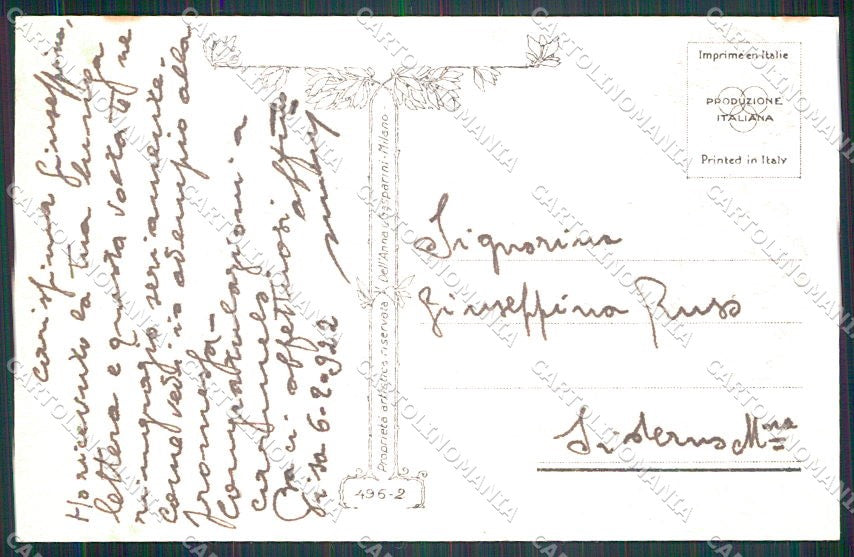 Carissima Giuseppina,
Ho ricevuto la tua lunga
lettera e questa volta te ne
ringrazio seriamente.
come vedi io adempio alla
promessa -
Congratulazioni a
Baci affettuosi
6-2-922
Proprietà artistica riservata Dell'Anna & Gasparini - Milano
495-2
Imprimé en Italie
PRODUZIONE
ITALIANA
Printed in Italy
Signorina
Giuseppina Russo
Siderno Mna
CARTOLINOMANIA